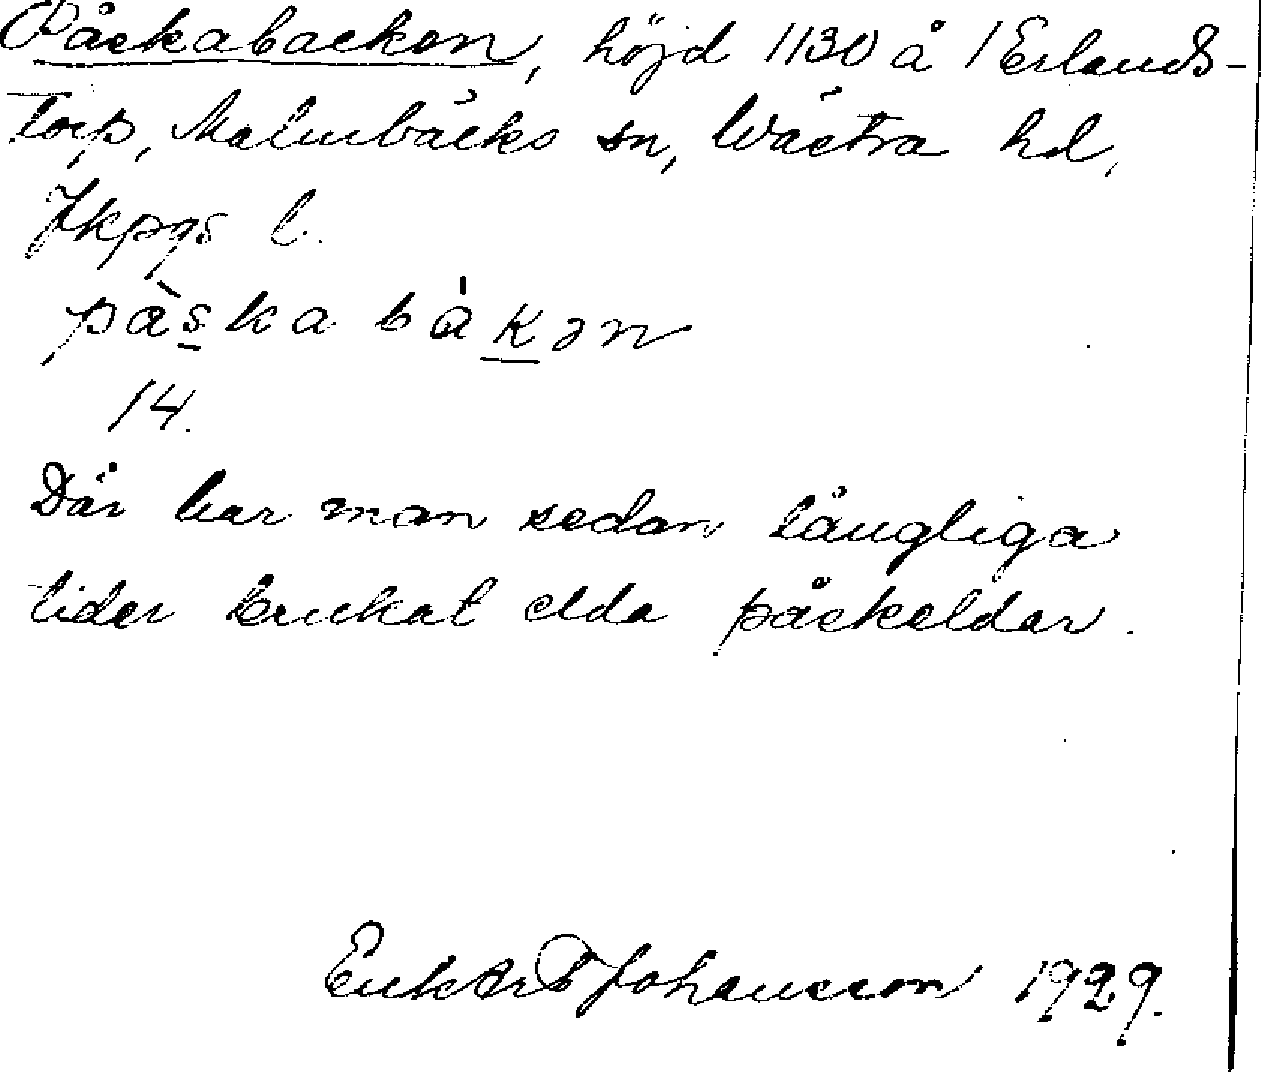 Påskabacken, höjd 1130 å 1 Erlands-
torp, Malmbäcks sn, Västra hd,
Jkpgs l.
pàska bákən
14.
Där har man sedan långliga
tider brukat elda påskeldar.
Johansson 1929.